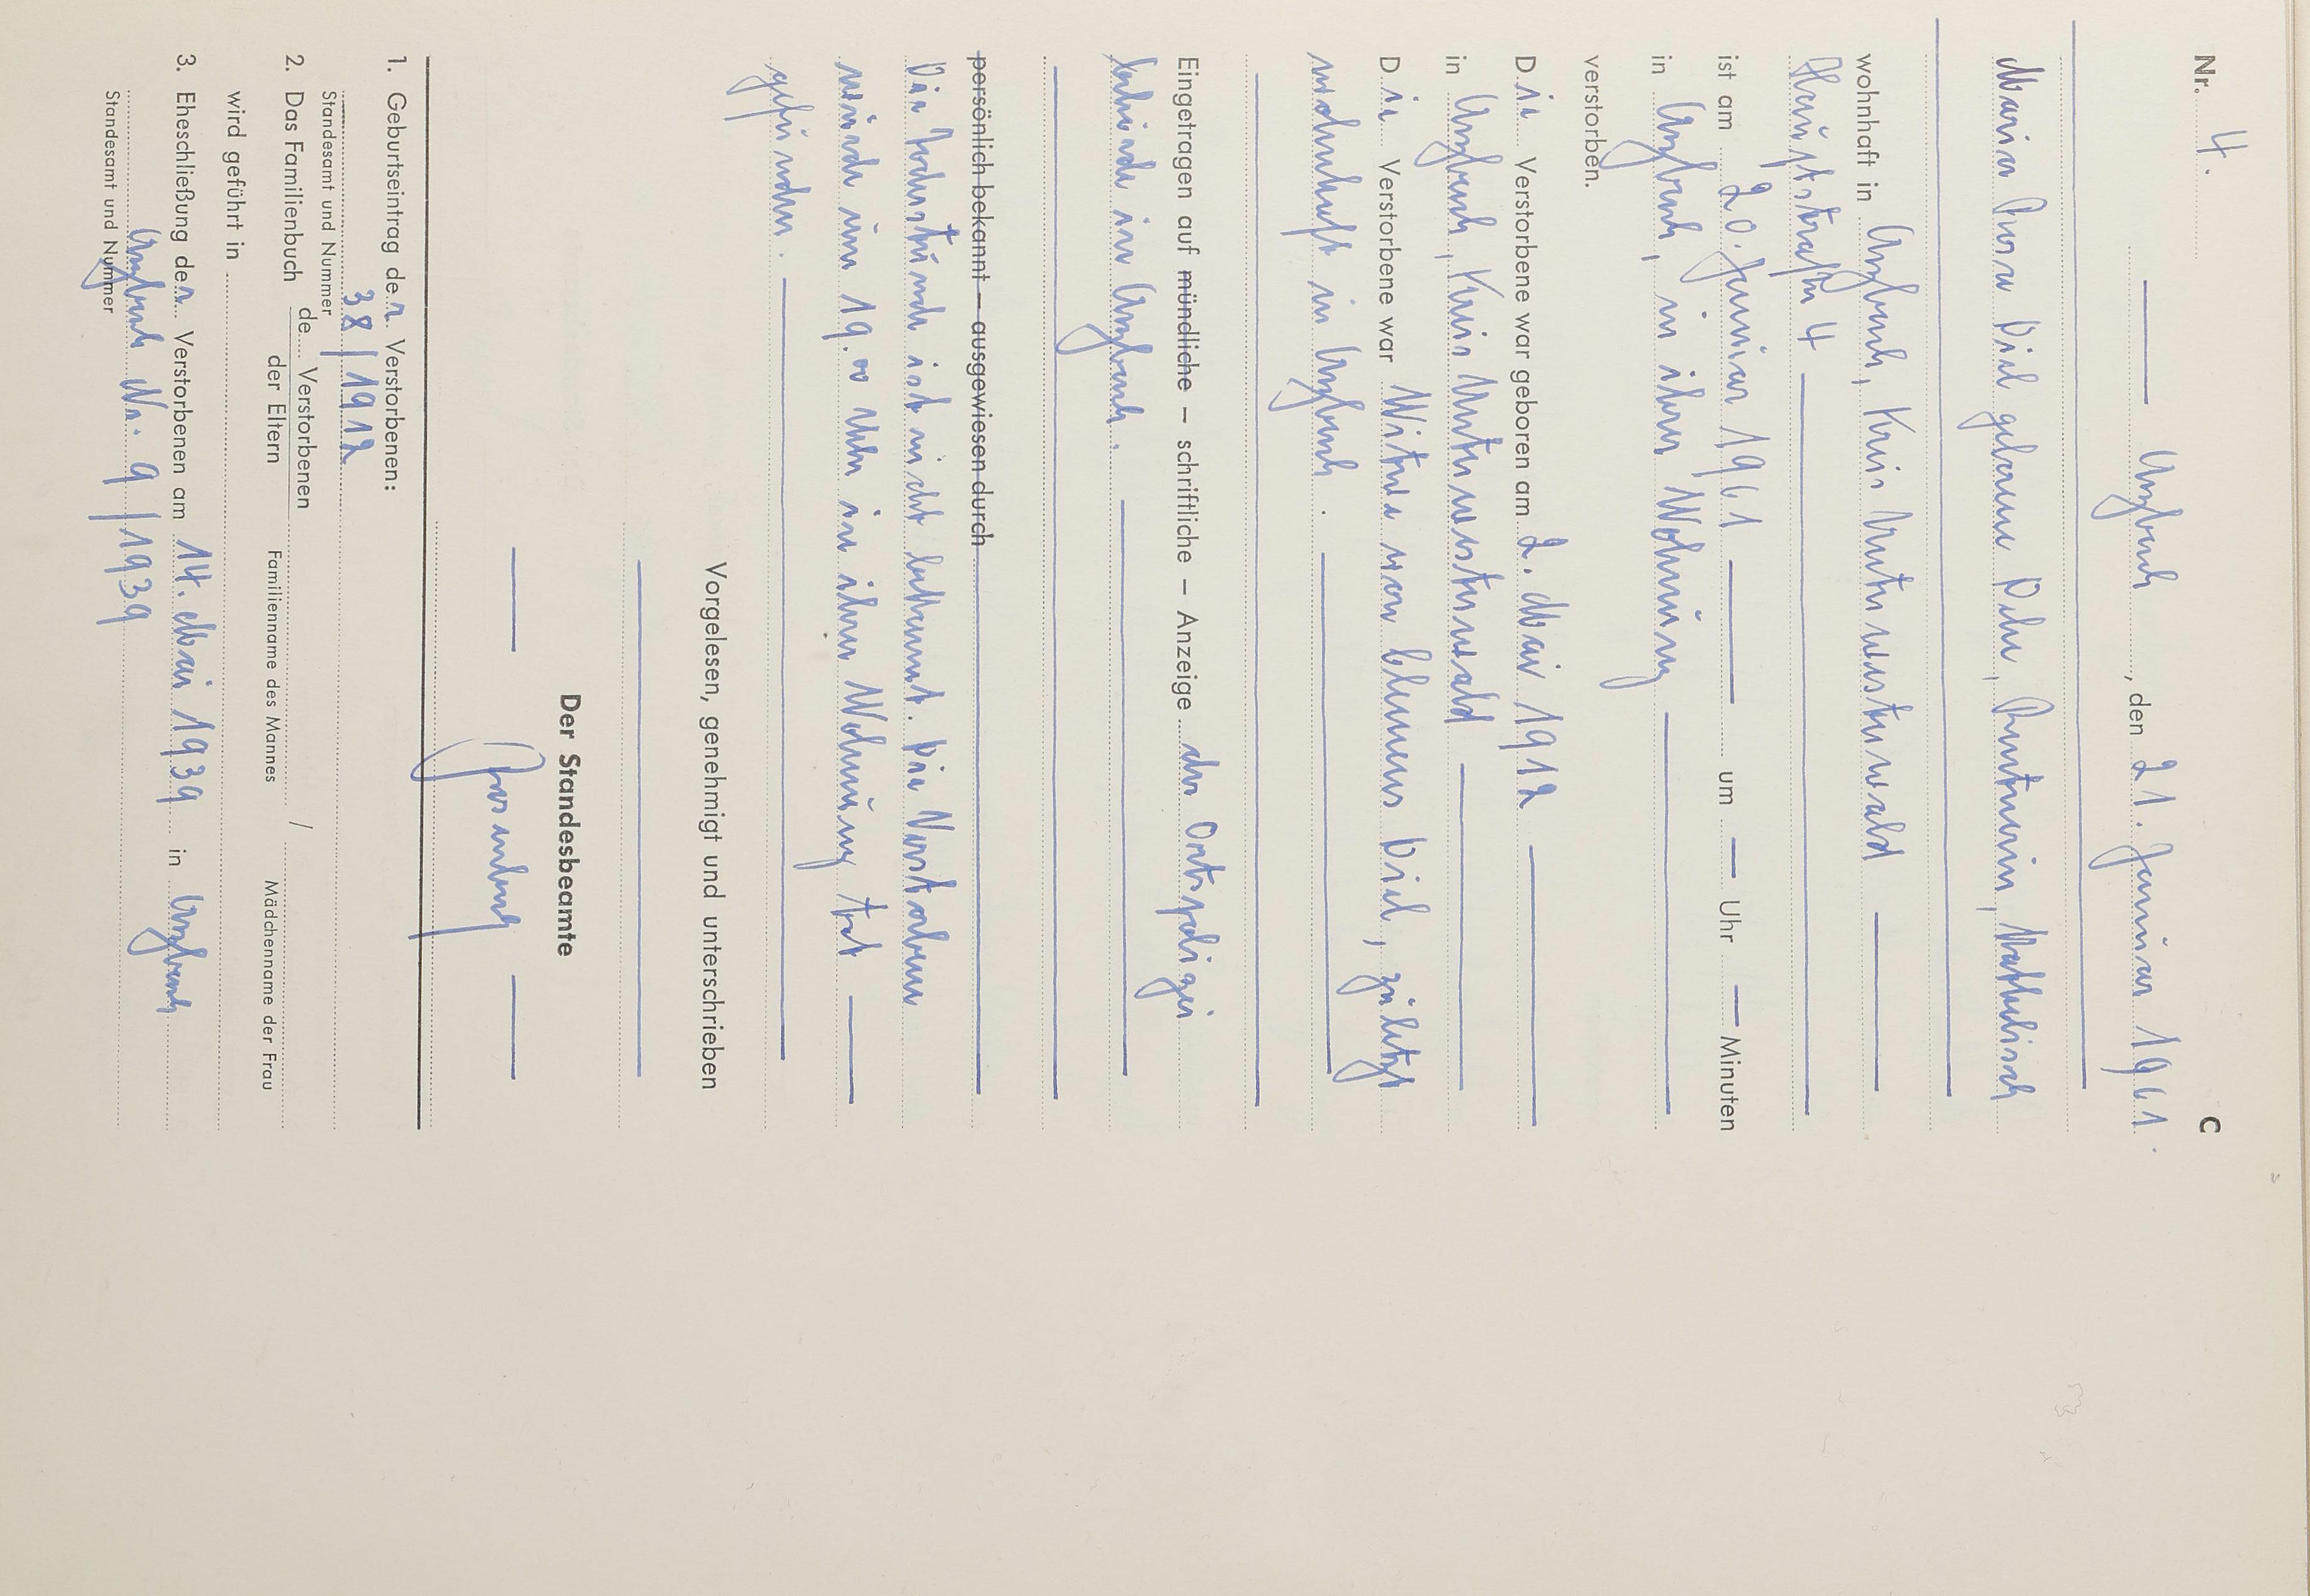 Nr. 4. C
Arzbach, den 21. Januar 1961.
Maria Rosa Diel geborene Dehe, Rentnerin, katholisch
wohnhaft in Arzbach, Kreis Unterwesterwald
Hauptstraße 4
ist am 20. Januar 1961 um — Uhr — Minuten
in Arzbach, in ihrer Wohnung
verstorben.
Die Verstorbene war geboren am 2. Mai 1912
in Arzbach, Kreis Unterwesterwald
Die Verstorbene war Witwe von Clemens Diel, zuletzt
wohnhaft in Arzbach.
Eingetragen auf mündliche – schriftliche – Anzeige der Ortspolizei
behörde in Arzbach.
persönlich bekannt – ausgewiesen durch
Die Todesstunde ist nicht bekannt. Die Verstorbene
wurde um 19.00 Uhr in ihrer Wohnung tot
gefunden.
Vorgelesen, genehmigt und unterschrieben
Der Standesbeamte
1. Geburtseintrag der Verstorbenen:
38/1912
Standesamt und Nummer
2. Das Familienbuch de Verstorbenen /
der Eltern Familienname des Mannes Mädchenname der Frau
wird geführt in
3. Eheschließung der Verstorbenen am 14. Mai 1939 in Arzbach
Arzbach Nr. 9/1939
Standesamt und Nummer